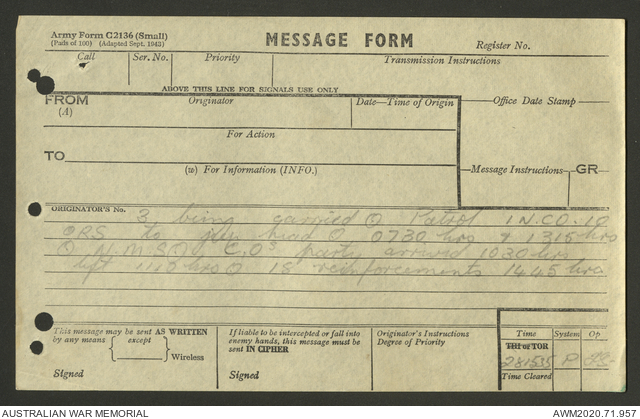 Army Form C2136 (Small)
(Pads of 100) (Adapted Sept. 1943)
MESSAGE FORM
Register No.
Call
Ser. No.
Priority
Transmission Instructions
ABOVE THIS LINE FOR SIGNALS USE ONLY
FROM
(A)
Originator
Date—Time of Origin
Office Date Stamp
For Action
TO
(w) For Information (INFO.)
Message Instructions
GR
ORIGINATOR'S No.
3 being carried O Patrol 1 N.CO. 10
ORS to jetty head O 0730 hrs & 1315 hrs
O C.O's party arrived 1030 hrs
left hrs O 18 reinforcements 1445 hrs
This message may be sent AS WRITTEN
by any means except
Wireless
Signed
If liable to be intercepted or fall into
enemy hands, this message must be
sent IN CIPHER
Signed
Originator's Instructions
Degree of Priority
Time
System
Op
THI or TOR
281535
P
Time Cleared
AUSTRALIAN WAR MEMORIAL
AWM2020.71.957